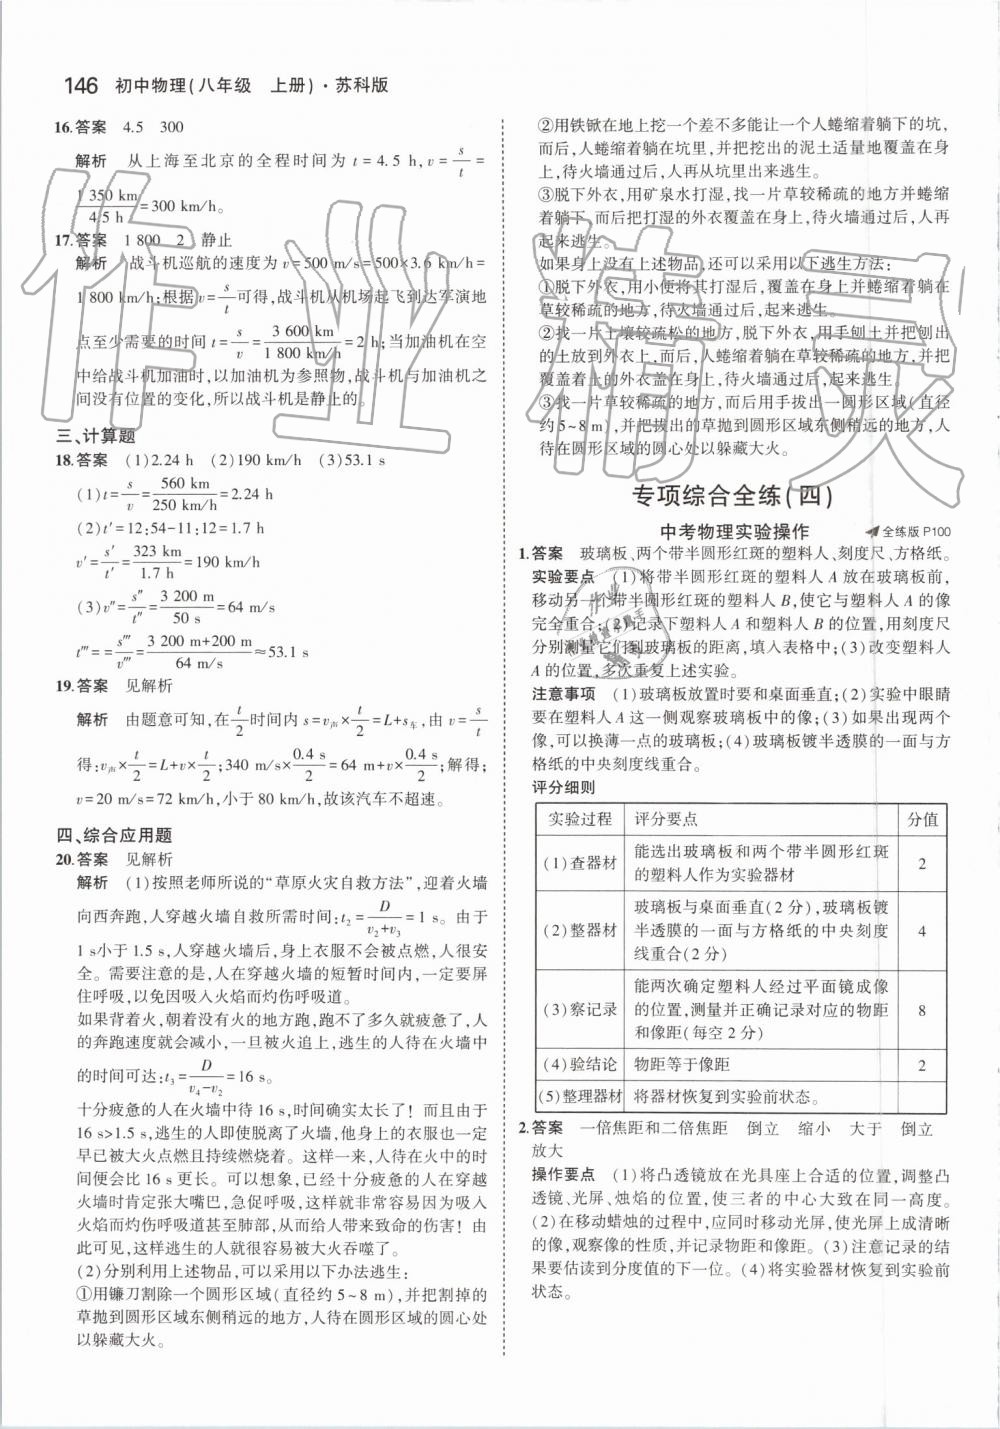 146 初中物理(八年级 上册)·苏科版
16.答案 4.5 300
解析 从上海至北京的全程时间为 t = 4.5 h, v = s/t =
1 350 km/4.5 h = 300 km/h。
17.答案 1 800 2 静止
解析 战斗机巡航的速度为 v = 500 m/s = 500×3.6 km/h =
1 800 km/h;根据v = s/t可得,战斗机从机场起飞到达军演地
点至少需要的时间 t = s/v = 3 600 km/1 800 km/h = 2 h;当加油机在空
中给战斗机加油时,以加油机为参照物,战斗机与加油机之
间没有位置的变化,所以战斗机是静止的。
三、计算题
18.答案 (1)2.24 h (2)190 km/h (3)53.1 s
(1)t = s/v = 560 km/250 km/h = 2.24 h
(2)t′ = 12:54-11:12 = 1.7 h
v′ = s′/t′ = 323 km/1.7 h = 190 km/h
(3)v″ = s″/t″ = 3 200 m/50 s = 64 m/s
t‴ = = s‴/v‴ = 3 200 m+200 m/64 m/s ≈ 53.1 s
19.答案 见解析
解析 由题意可知,在t/2时间内 s = v声×t/2 = L+s车,由 v = s/t
得:v声×t/2 = L+v×t/2;340 m/s×0.4 s/2 = 64 m+v×0.4 s/2;解得;
v = 20 m/s = 72 km/h,小于 80 km/h,故该汽车不超速。
四、综合应用题
20.答案 见解析
解析 (1)按照老师所说的“草原火灾自救方法”,迎着火墙
向西奔跑,人穿越火墙自救所需时间:t₂ = D/v₂+v₃ = 1 s。由于
1 s小于 1.5 s,人穿越火墙后,身上衣服不会被点燃,人很安
全。需要注意的是,人在穿越火墙的短暂时间内,一定要屏
住呼吸,以免因吸入火焰而灼伤呼吸道。
如果背着火,朝着没有火的地方跑,跑不了多久就疲惫了,人
的奔跑速度就会减小,一旦被火追上,逃生的人待在火墙中
的时间可达:t₃ = D/v₄-v₂ = 16 s。
十分疲惫的人在火墙中待 16 s,时间确实太长了! 而且由于
16 s>1.5 s,逃生的人即使脱离了火墙,他身上的衣服也一定
早已被大火点燃且持续燃烧着。这样,逃生的人待在火中的
时间将远比 16 s 更长。可以想象,已经十分疲惫的人在穿越
火墙时肯定张大嘴巴,急促呼吸,这样就非常容易因为吸入
火焰而灼伤呼吸道甚至肺部,从而带来致命的伤害! 由
此可见,这样逃生的人就很容易被大火吞噬了。
(2)分别利用上述物品,可以采用以下办法逃生:
①用镰刀割除一个圆形区域(直径约5~8 m),并把割掉的
草抛到圆形区域东侧稍远的地方,人待在圆形区域的圆心处
以躲藏大火。
②用铁锨在地上挖一个差不多能让一个人蜷缩着躺下的坑,
而后,人蜷缩着躺在坑里,并把挖出的泥土适量地覆盖在身
上,待火墙通过后,人再从坑里出来逃生。
③脱下外衣,用矿泉水打湿,找一片草较稀疏的地方并蜷缩
着躺下,而后把打湿的外衣覆盖在身上,待火墙通过后,人再
起来逃生。
如果身上没有上述物品,还可以采用以下逃生方法:
①脱下外衣,用小便将其打湿后,覆盖在身上,蜷缩着躺在
草较稀疏的地方,待火墙通过后,人再起来逃生。
②找一片土壤较疏松的地方,脱下外衣,用手刨土并把刨出
的土放到外衣上,而后,人蜷缩着躺在草较稀疏的地方,并把
放了土的外衣盖在身上,待火墙通过后,人再起来逃生。
③找一片草较稀疏的地方,用手拔出一圆形区域(直径
约5~8 m),并把拔出的草抛到圆形区域东侧稍远的地方,人
待在圆形区域的圆心处以躲藏大火。
专项综合全练(四)
中考物理实验操作 全练版 P100
1.答案 玻璃板、两个带半圆形红斑的塑料人、刻度尺、方格纸。
实验要点 (1)将带半圆形红斑的塑料人 A 放在玻璃板前,
移动另一个带半圆形红斑的塑料人 B,使它与塑料人 A 的像
完全重合;(2)记录下塑料人 A 和塑料人 B 的位置,用刻度尺
分别测量它们到玻璃板的距离,填入表格中;(3)改变塑料人
A 的位置,多次重复上述实验。
注意事项 (1)玻璃板放置时要和桌面垂直;(2)实验中眼睛
要在塑料人A 这一侧观察玻璃板中的像;(3)如果出现两个
像,可以换薄一点的玻璃板;(4)玻璃板镀半透膜的一面与方
格纸的中央刻度线重合。
评分细则
实验过程 评分要点 分值
(1)查器材 能选出玻璃板和两个带半圆形红斑
的塑料人作为实验器材 2
(2)整器材 玻璃板与桌面垂直(2 分),玻璃板镀
半透膜的一面与方格纸的中央刻度
线重合(2 分) 4
(3)察记录 能两次确定塑料人经过平面镜成像
的位置,测量并正确记录对应的物距
和像距(每空 2 分) 8
(4)验结论 物距等于像距 2
(5)整理器材 将器材恢复到实验前状态。
2.答案 一倍焦距和二倍焦距 倒立 缩小 大于 倒立
放大
操作要点 (1)将凸透镜放在光具座上合适的位置,调整凸
透镜、光屏、烛焰的位置,使三者的中心大致在同一高度。
(2)在移动蜡烛的过程中,应同时移动光屏,使光屏上成清晰
的像,观察像的性质,并记录物距和像距。(3)注意记录的结
果要估读到分度值的下一位。(4)将实验器材恢复到实验前
状态。
作业精灵